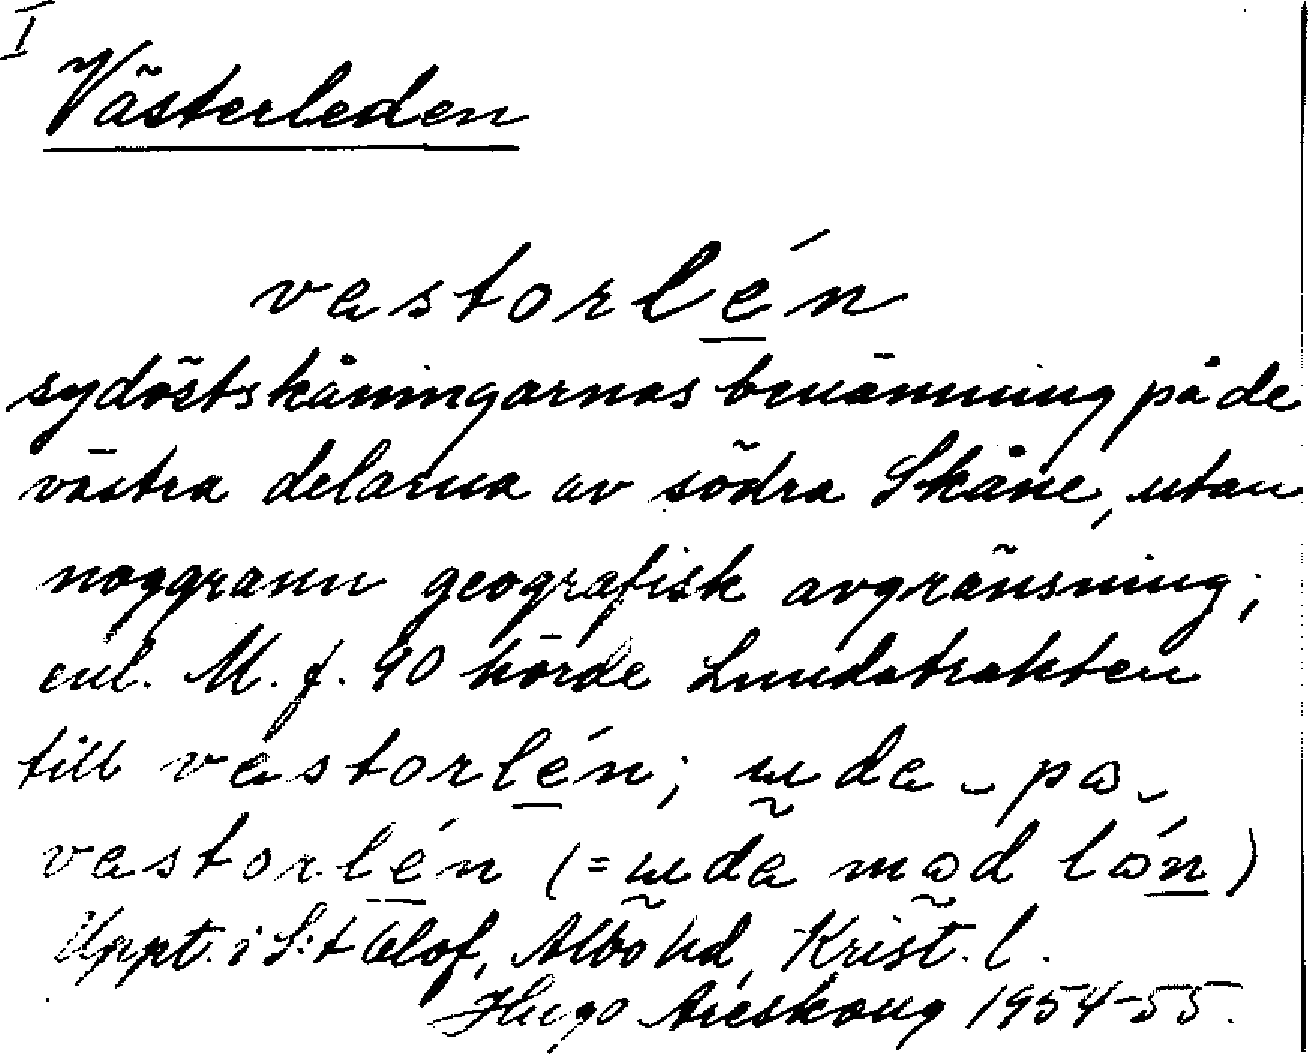 I
Västerleden
vastorlén
sydöstskåningarnas benämning på de
västra delarna av södra Skåne, utan
noggrann geografisk avgränsning;
enl. M. f. 90 hörde Lundatrakten
till vastorlén; uda pa
vastorlén (= uda mad lán)
Uppt. i S:t Olof, Albo hd, Krist. l.
Hugo Areskoug 1954-55.